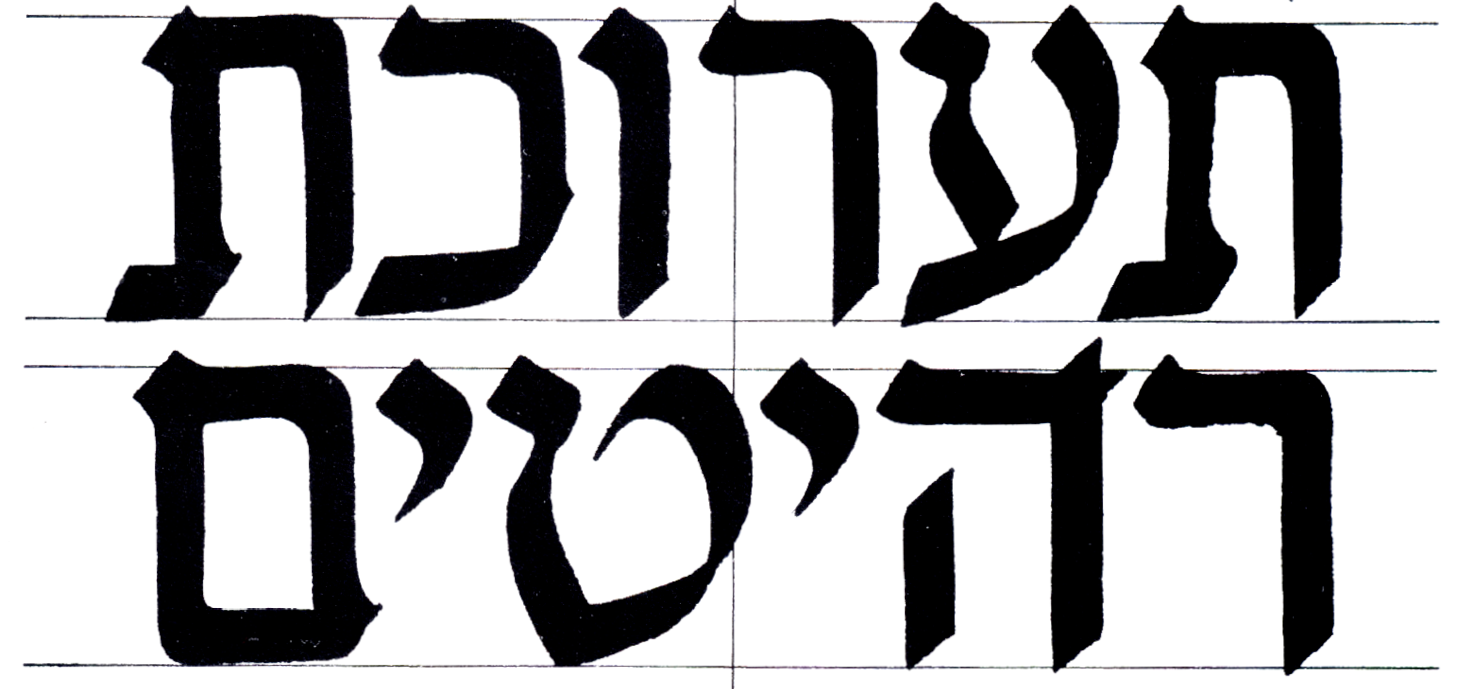 תערוכת
רהיטים